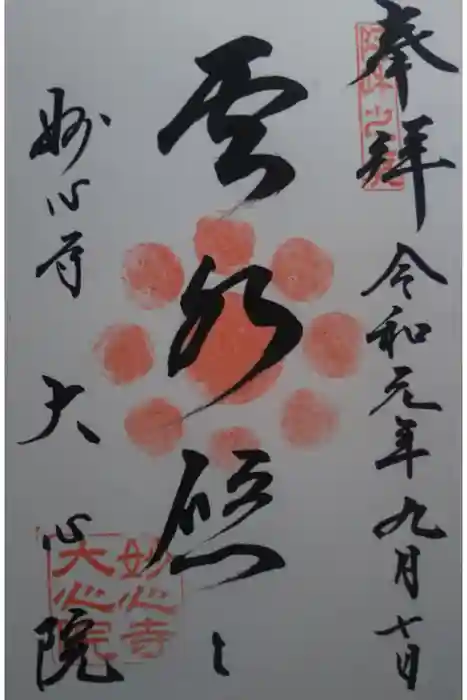 奉拜
令和元年九月七日
雲水
妙心寺 大心院
妙心寺
大心院